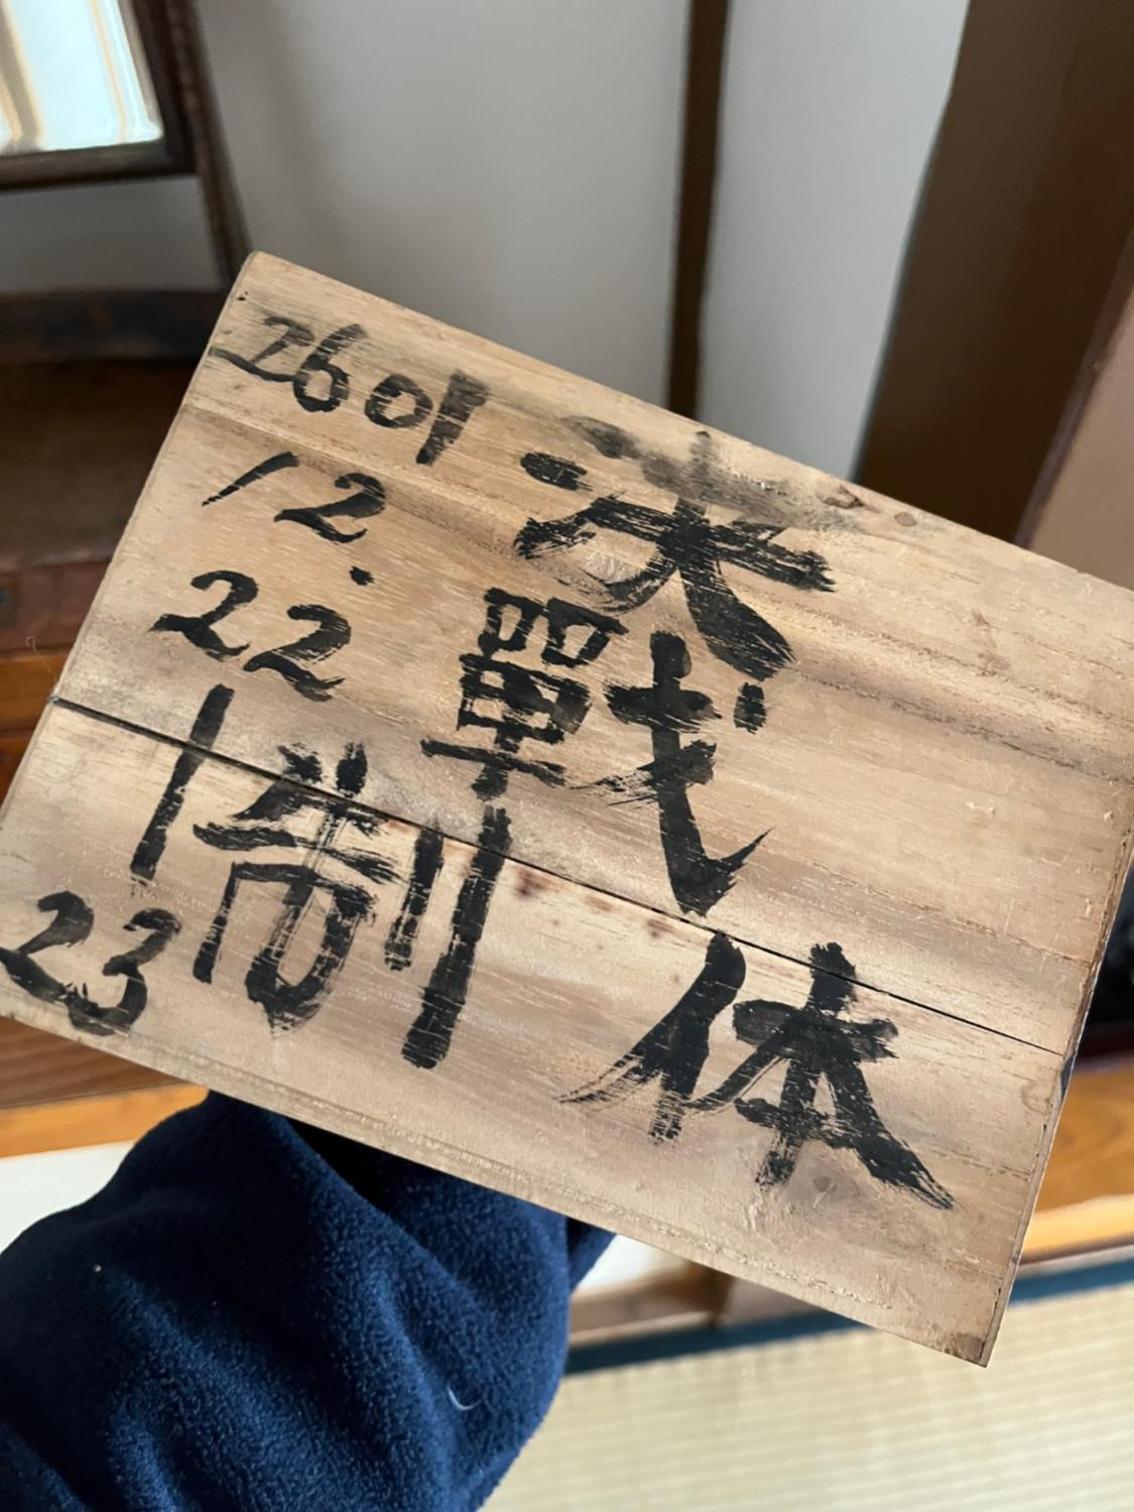 決戰
体制
2601
12.
22
|
23